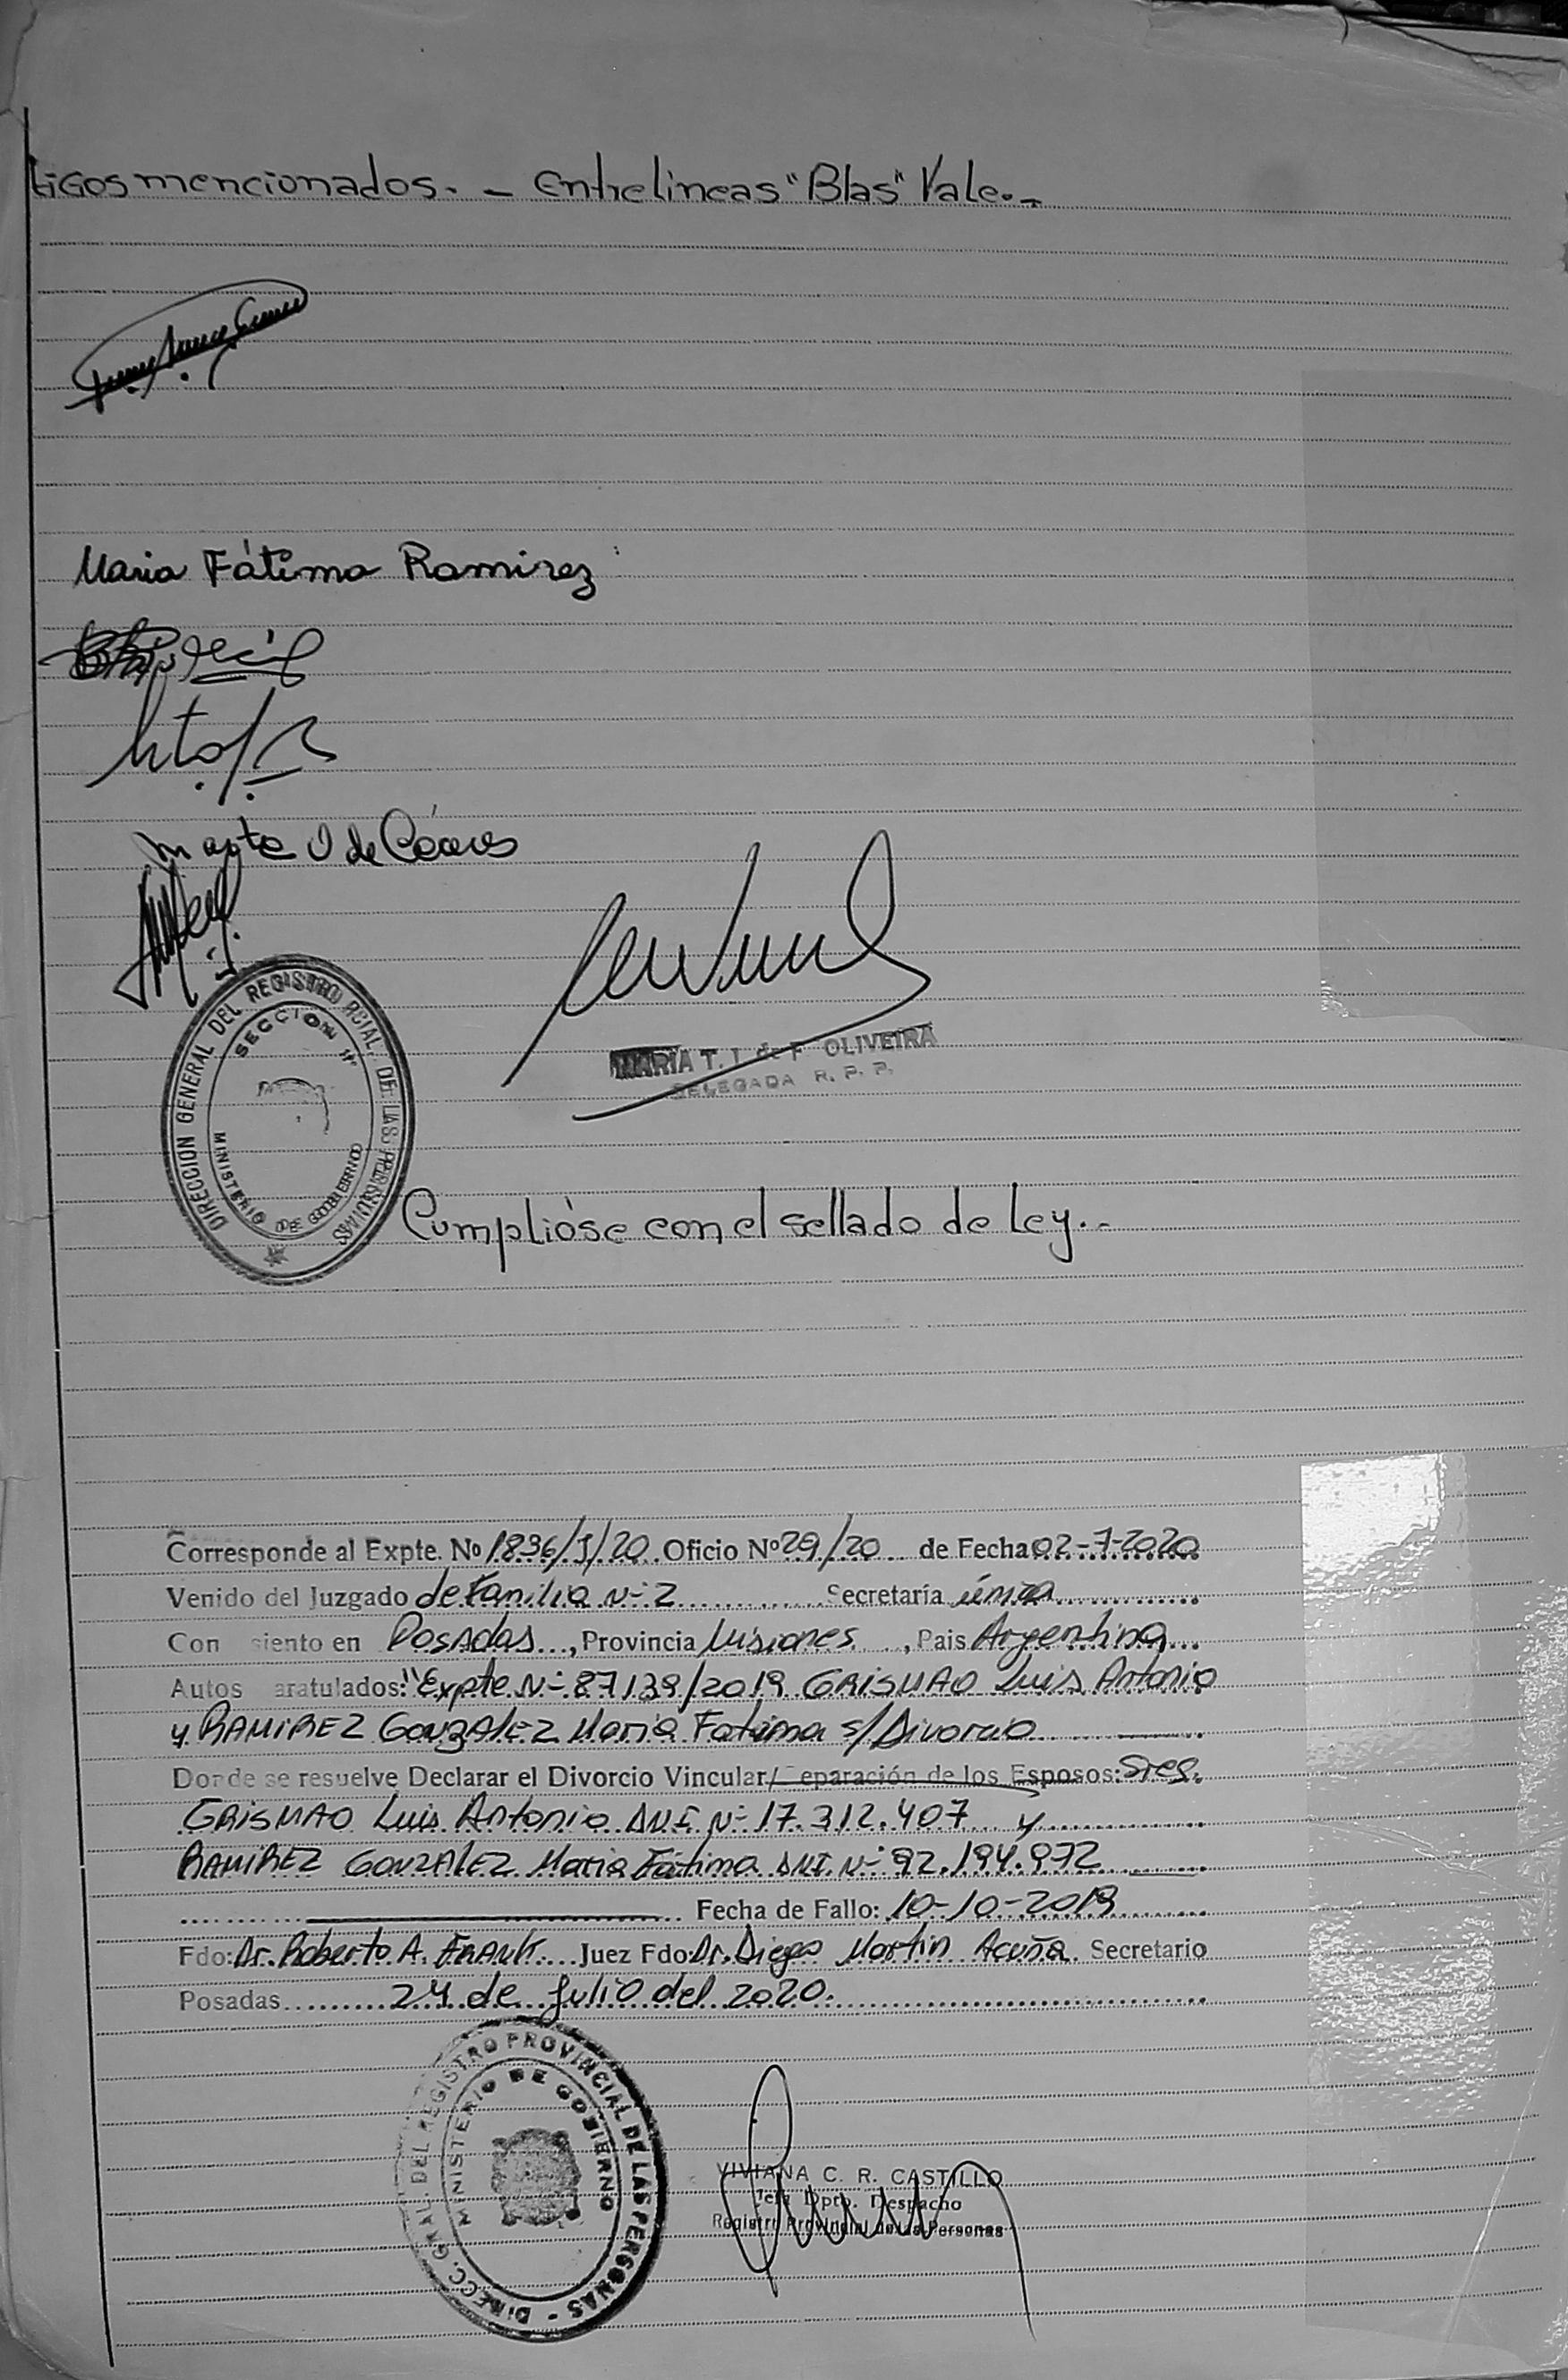 tigos mencionados. - Entrelíneas "Blas" Vale.-
Maria Fátima Ramirez
DIRECCION GENERAL DEL REGISTRO PCIAL. DE LAS PERSONAS
SECCION 1ª
MINISTERIO DE GOBIERNO
MARIA T. I. de F. OLIVEIRA
DELEGADA R. P. P.
Cumplióse con el sellado de Ley.-
Corresponde al Expte. Nº 1836/I/20 Oficio Nº 29/20 de Fecha 02-7-2020
Venido del Juzgado de Familia Nº 2 Secretaría única
Con siento en Posadas, Provincia Misiones, Pais Argentina
Autos aratulados: "Expte Nº 87139/2019 GRISMAO Luis Antonio
y RAMIREZ GONZALEZ Maria Fatima s/Divorcio
Donde se resuelve Declarar el Divorcio Vincular/ eparación de los Esposos: Sres.
GRISMAO Luis Antonio DNI Nº 17.312.407 y
RAMIREZ GONZALEZ Maria Fátima DNI Nº 92.194.972
Fecha de Fallo: 10-10-2019
Fdo: Dr. Roberto A. FRANK Juez Fdo: Dr. Diego Martin Acuña Secretario
Posadas 24 de Julio del 2020.
DIRECC. GRAL. DEL REGISTRO PROVINCIAL DE LAS PERSONAS
MINISTERIO DE GOBIERNO
VIVIANA C. R. CASTILLO
Jefa Dpto. Despacho
Registro Provincial de las Personas